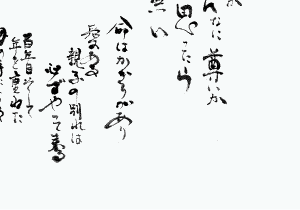 んなに尊いか
思ったら
無い
命はかぎりがあり
愛する
親子の別れは
必ずやって来る
百年目ざして
年を重ねた